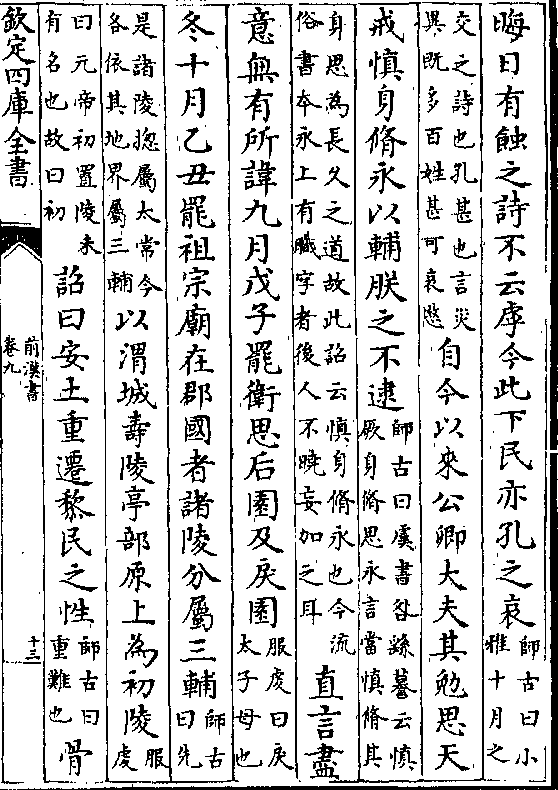 晦日有蝕之詩不云虖今此下民亦孔之哀師古曰小雅十月之
交之詩也孔甚也言災異既多百姓甚可哀愍自今以來公卿大夫其勉思天
戒慎身脩永以輔朕之不逮師古曰虞書咎繇謩云慎厥身脩思永言當慎脩其
身思為長久之道故此詔云慎身脩永也今流俗書本永上有職字者後人不曉妄加之耳直言盡
意無有所諱九月戊子罷衛思后園及戾園服虔曰戾太子母也
冬十月乙丑罷祖宗廟在郡國者諸陵分屬三輔師古曰先
是諸陵揔屬太常今各依其地界屬三輔以渭城壽陵亭部原上為初陵服虔
曰元帝初置陵未有名也故曰初詔曰安土重遷黎民之性師古曰重難也骨
欽定四庫全書
前漢書
卷九
十三